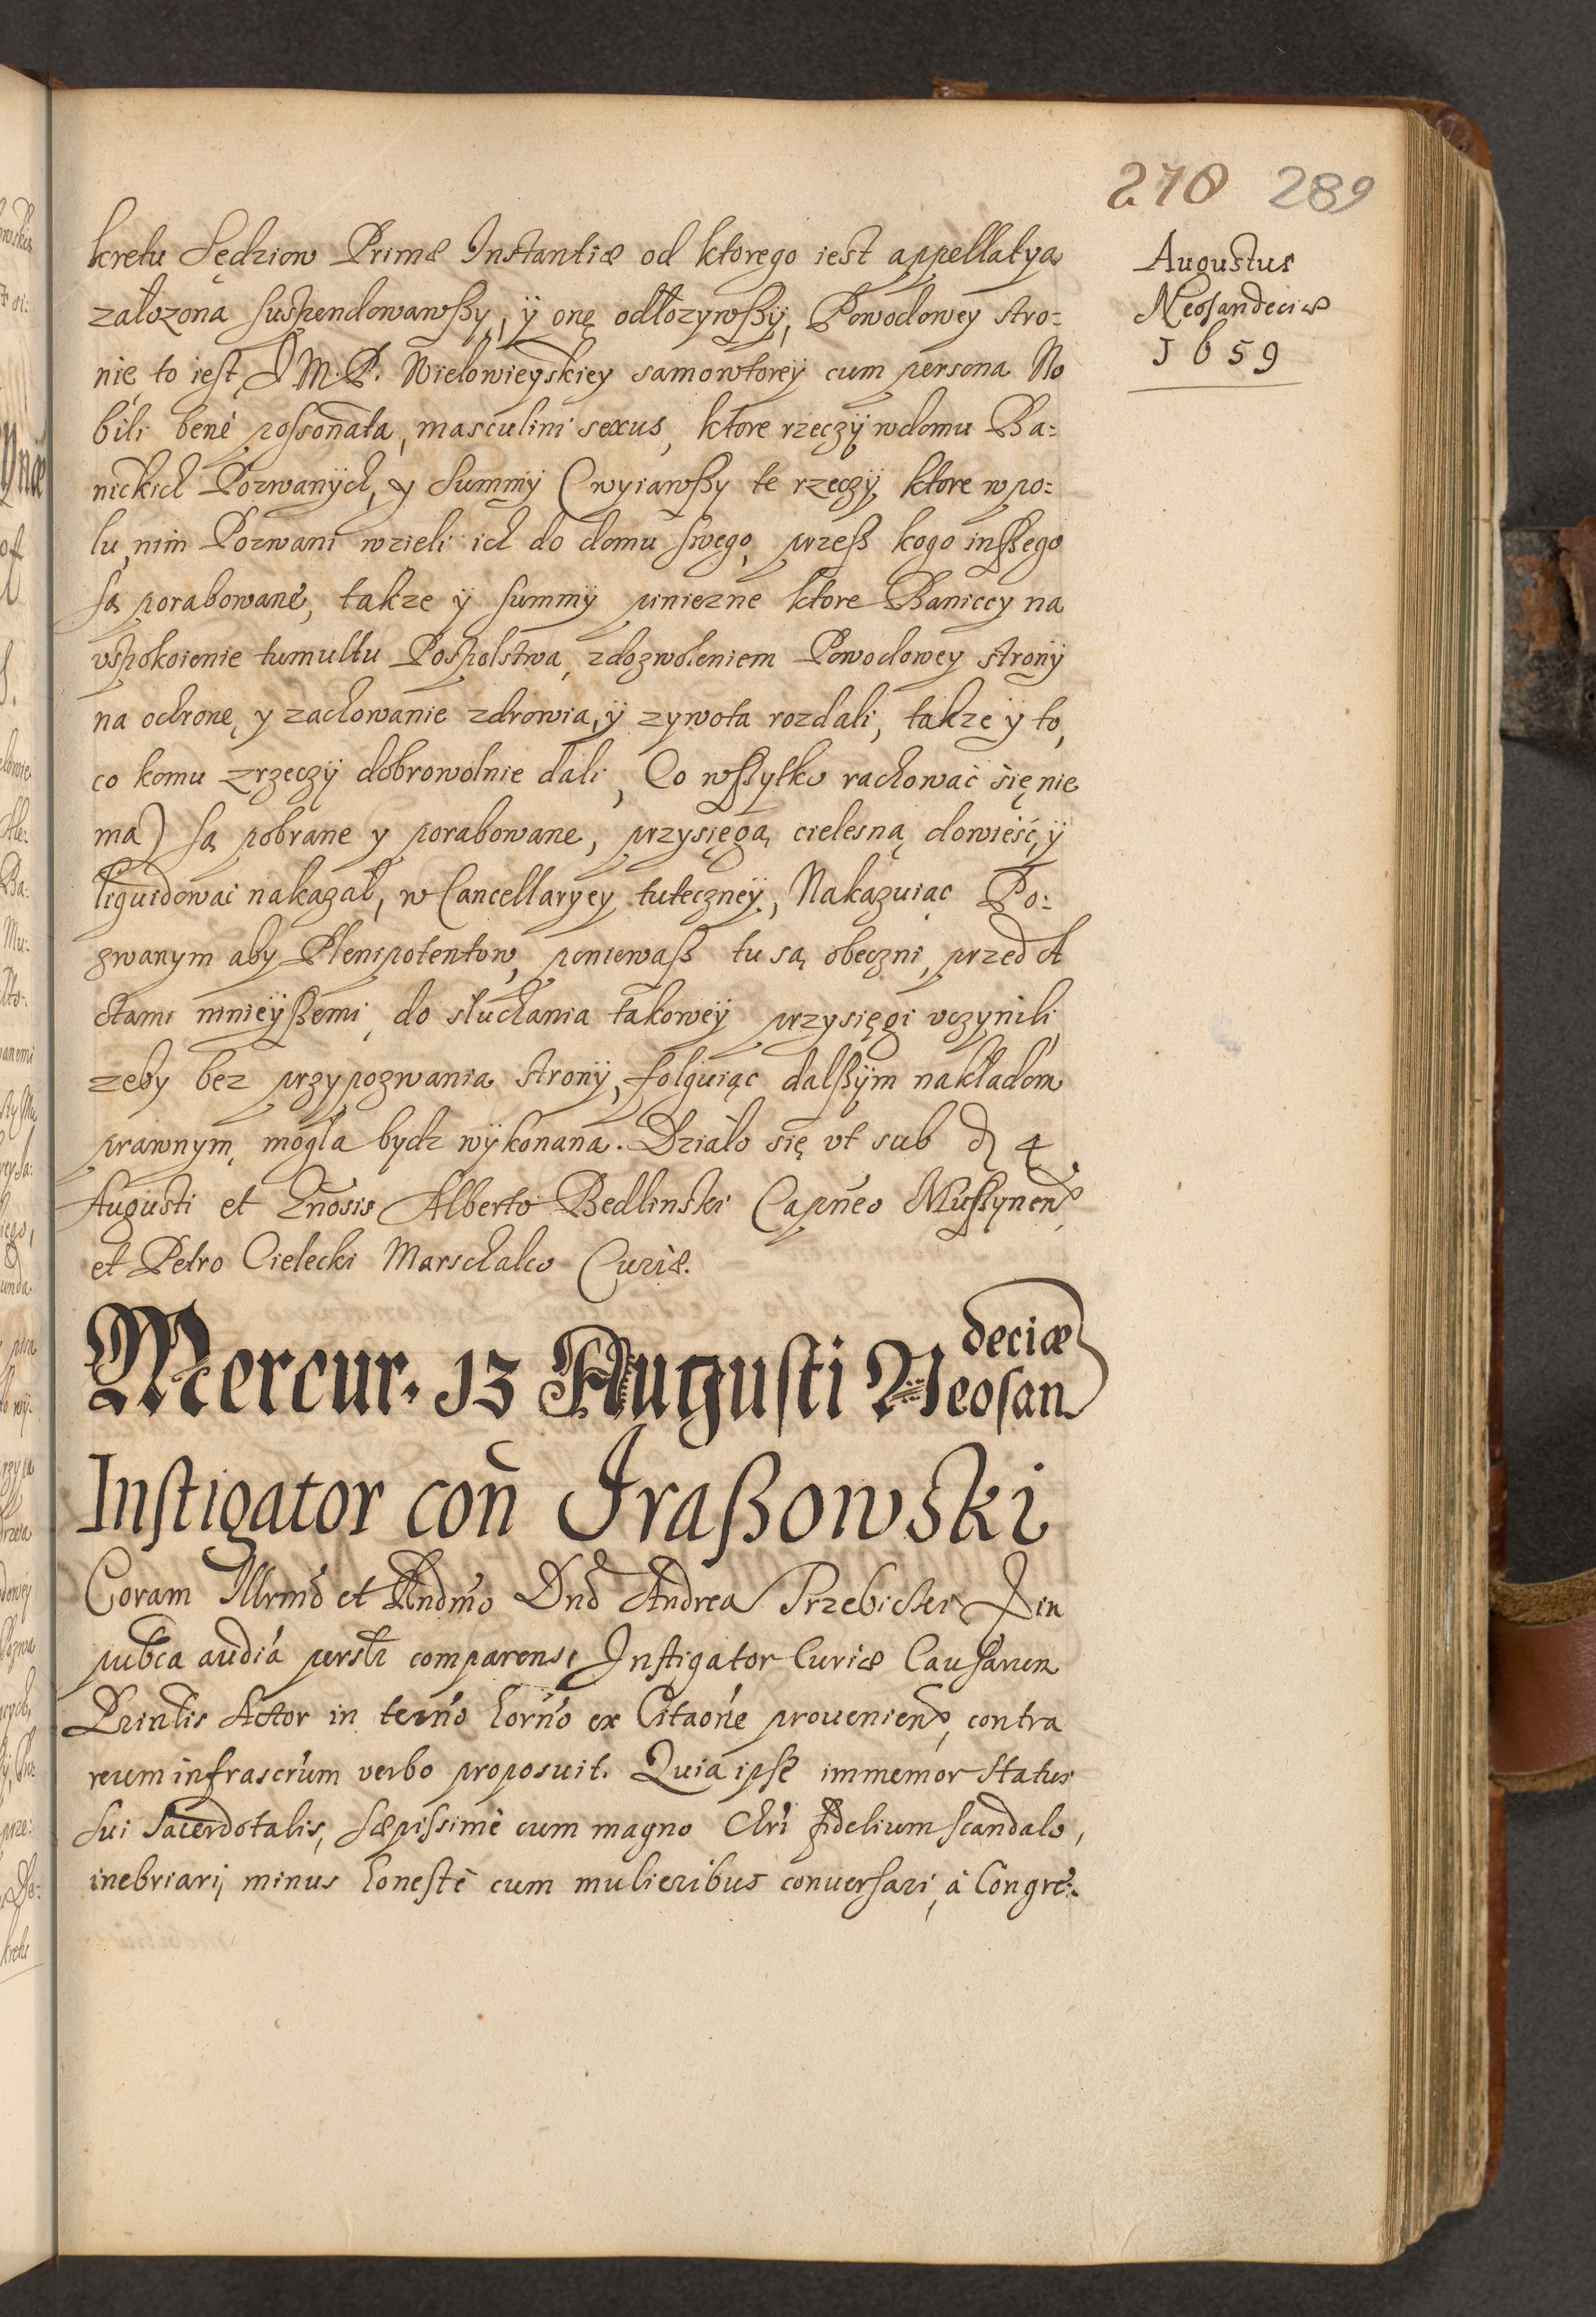 278 289
Augustus
Neosandeciæ
1659
kretu Sędziow Primæ Instantiæ od ktorego iest appellatya
założona suspendowawszy, ÿ onę odłozywszÿ, Powodowey stro=
nie to iest J M. P. Wielowieyskiey samowtorey cum persona No
bili bene possonata, masculini sexus, ktore rzeczÿ w domu Ba=
nickich Pozwanÿch, y Summÿ (wyiawszy te rzeczÿ ktore w po=
lu, nim Pozwani wzieli ich do domu swego, przesz kogo inszego
są porabowane, takze ÿ summÿ piniezne ktore Baniccy na
vspokoienie tumultu Pospolstwa, z dozwoleniem Powodowey stronÿ
na ochronę y zachowanie zdrowia, ÿ zywota rozdali, takze ÿ to,
co komu z rzeczÿ dobrowolnie dali, Co wszytko rachowac się nie
ma) są pobrane y porabowane, przysięgą cielesną dowieść, ÿ
liquidowac nakazał, w Cancellaryey tuteczneÿ, Nakazuiąc Po=
zwanym aby Plenipotentow, poniewasz tu są obeczni, przed A
ctami ninieÿszemi do słuchania takoweÿ przysięgi vczynili
zeby bez przypozwania stronÿ, folguiąc dalszÿm nakładom
prawnym, mogła bydz wÿkonana. Działo się vt sub d 4
Augusti et Gnosis Alberto Bedlinski Capneo Muszynen
et Petro Cielecki Marschalco Curiæ.
Mercur. 13 Augusti Neosan
deciæ
Instigator con Jraszowski
Coram Illrmo et Rndmo Dno Andrea Trzebicki in
pubca audia persblr comparens Instigator Curiæ Causarum
Printis Actor in termo horno ex Citaone prouenien, contra
reum infrascrum verbo proposuit. Quia ipse immemor status
sui Sacerdotalis, sæpissime cum magno Chri fidelium scandalo,
inebriari, minus honeste cum mulieribus conuersari, a Congre=